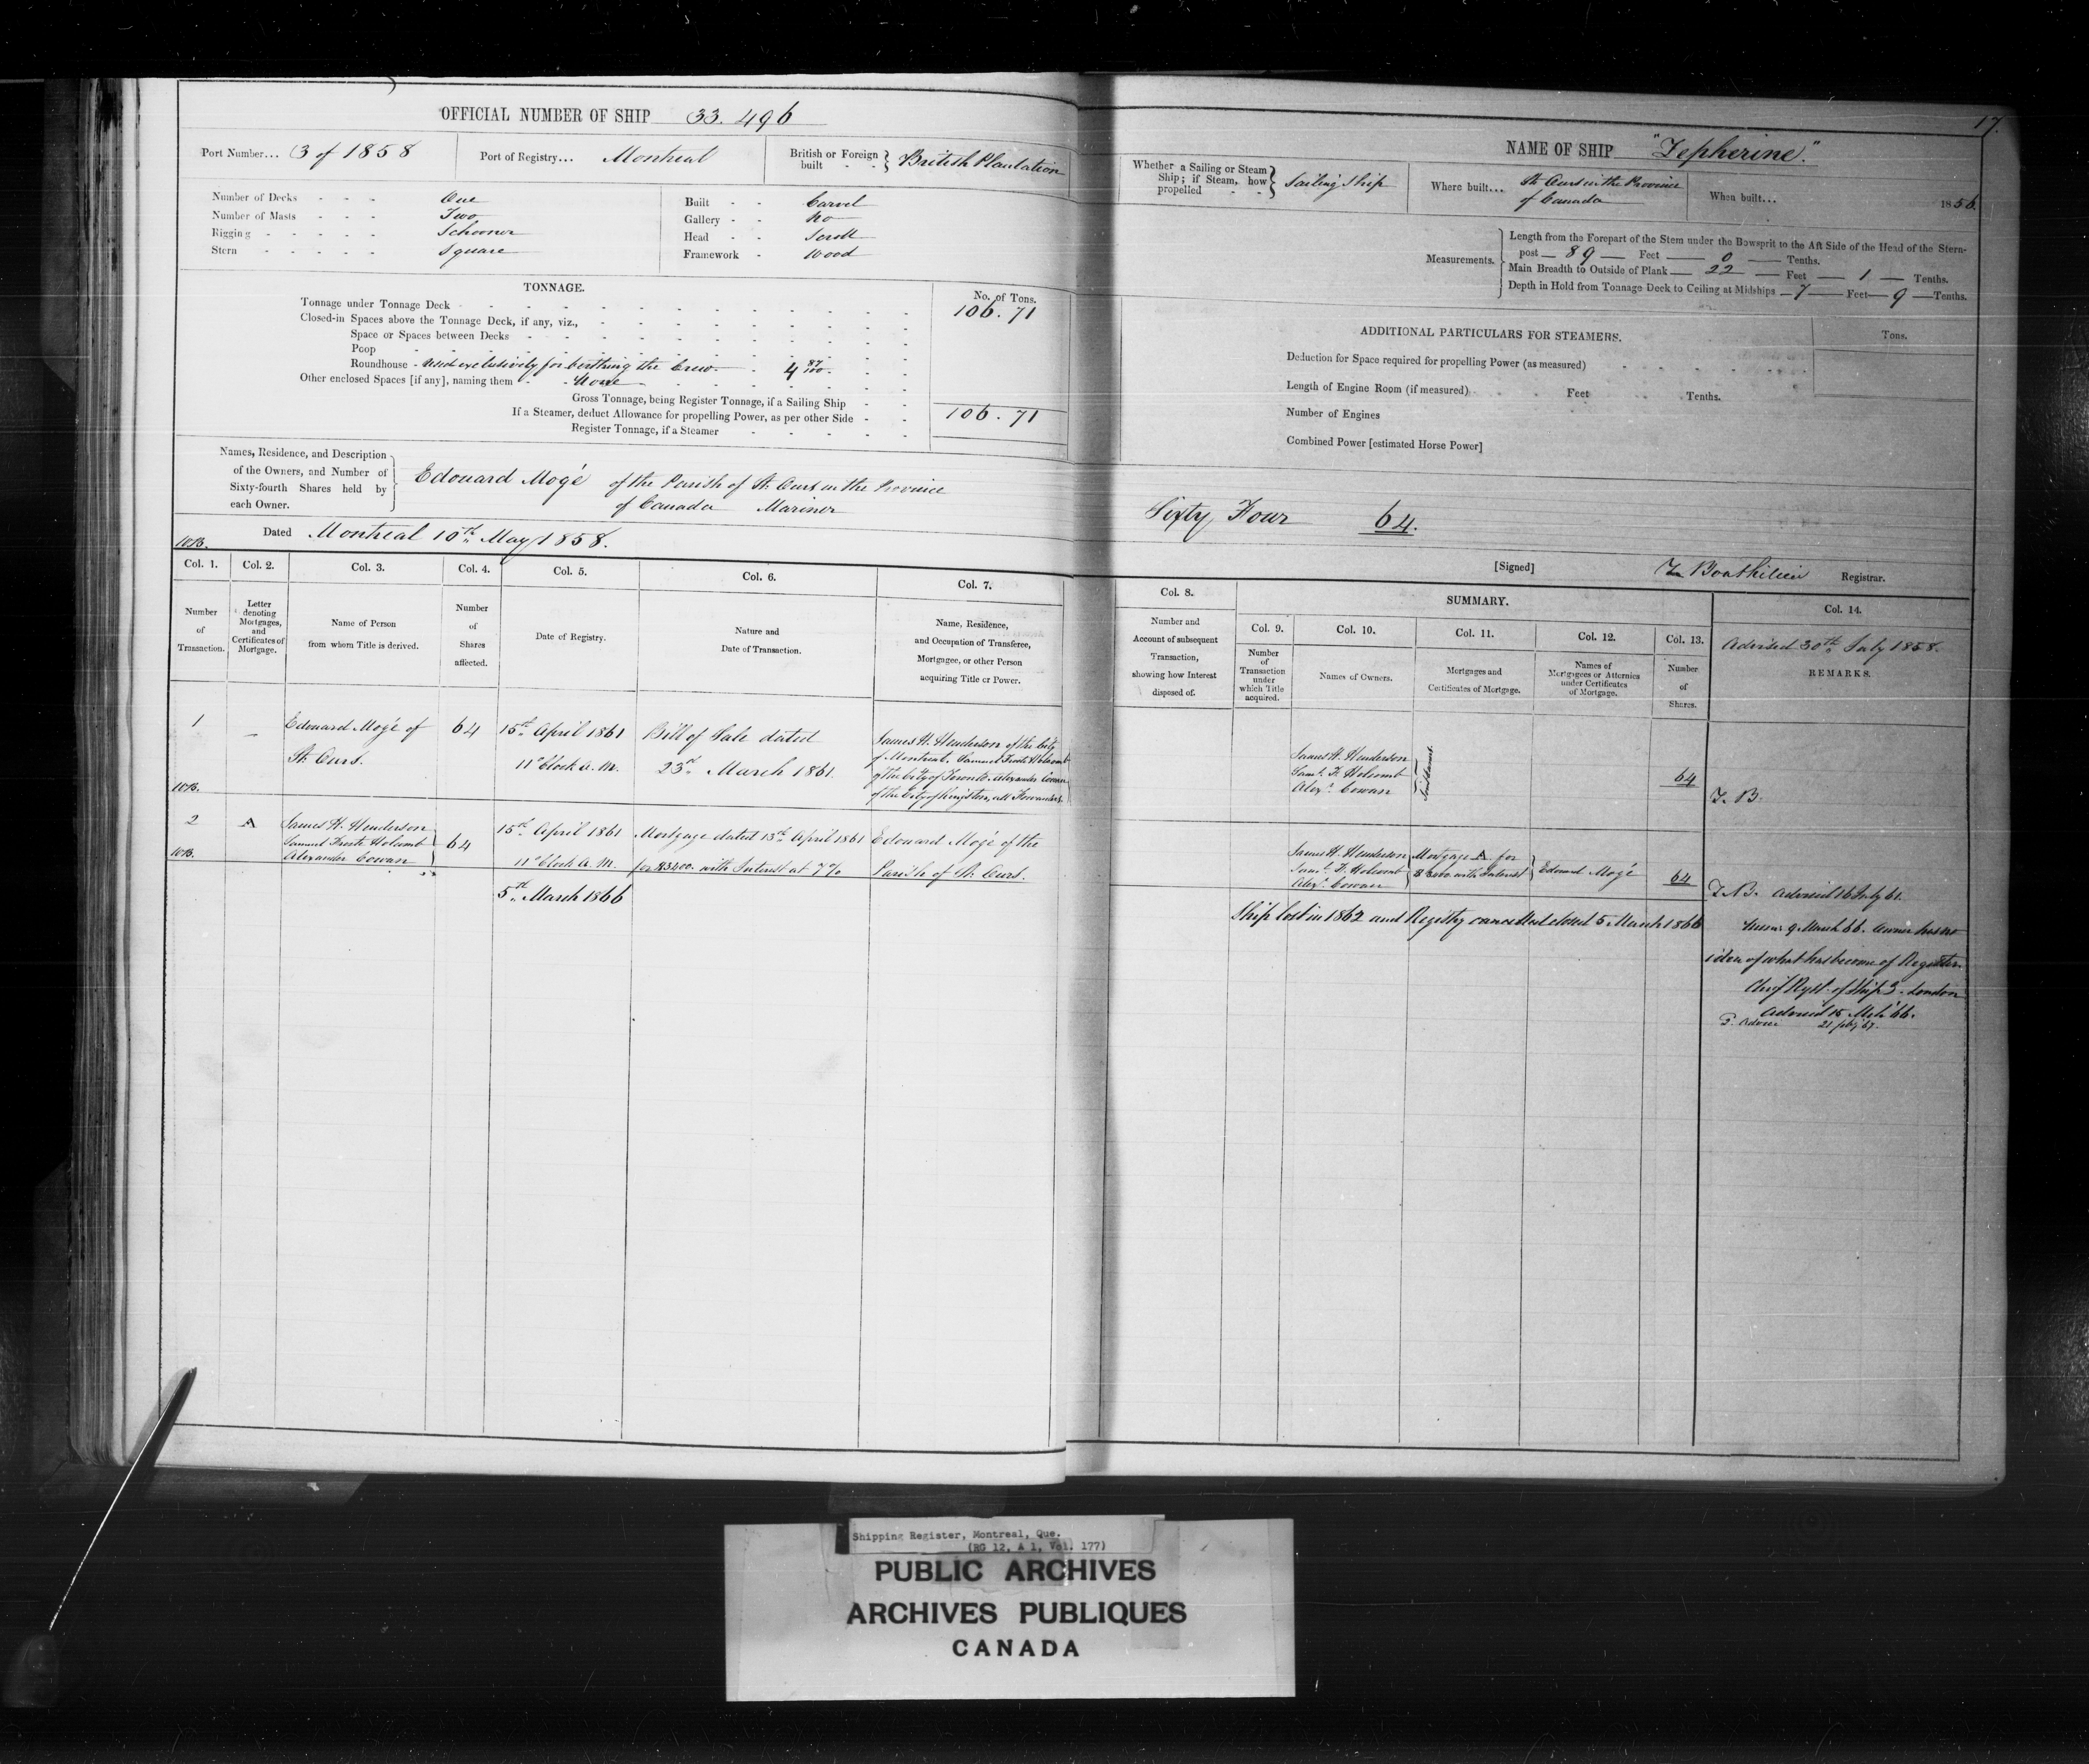 17.
OFFICIAL NUMBER OF SHIP 33.496
Port Number... 3 of 1858
Port of Registry... Montreal
British or Foreign built British Plantation
Number of Decks One
Number of Masts Two
Rigging Schooner
Stern Square
Built Carvel
Gallery No
Head Scroll
Framework Wood
TONNAGE.
No. of Tons.
Tonnage under Tonnage Deck 106.71
Closed-in Spaces above the Tonnage Deck, if any, viz.,
Space or Spaces between Decks
Poop
Roundhouse - Used exclusively for berthing the Crew 4 87/100
Other enclosed Spaces [if any], naming them None
Gross Tonnage, being Register Tonnage, if a Sailing Ship 106.71
If a Steamer, deduct Allowance for propelling Power, as per other Side
Register Tonnage, if a Steamer
Names, Residence, and Description
of the Owners, and Number of
Sixty-fourth Shares held by
each Owner.
Edouard Mogé of the Parish of St. Ours in the Province
of Canada Mariner
Dated Montreal 10th May 1858.
NAME OF SHIP "Zepherine."
Whether a Sailing or Steam
Ship; if Steam, how
propelled
Sailing Ship
Where built... St. Ours in the Province
of Canada
When built... 1856.
Measurements.
Length from the Forepart of the Stem under the Bowsprit to the Aft Side of the Head of the Stern-
post 89 Feet 0 Tenths.
Main Breadth to Outside of Plank 22 Feet 1 Tenths.
Depth in Hold from Tonnage Deck to Ceiling at Midships 7 Feet 9 Tenths.
ADDITIONAL PARTICULARS FOR STEAMERS.
Tons.
Deduction for Space required for propelling Power (as measured)
Length of Engine Room (if measured) Feet Tenths.
Number of Engines
Combined Power [estimated Horse Power]
Sixty Four 64.
[Signed] Registrar.
Col. 1.
Number
of
Transaction.
Col. 2.
Letter
denoting
Mortgages,
and
Certificates of
Mortgage.
Col. 3.
Name of Person
from whom Title is derived.
Col. 4.
Number
of
Shares
affected.
Col. 5.
Date of Registry.
Col. 6.
Nature and
Date of Transaction.
Col. 7.
Name, Residence,
and Occupation of Transferee,
Mortgagee, or other Person
acquiring Title or Power.
Col. 8.
Number and
Account of subsequent
Transaction,
showing how Interest
disposed of.
SUMMARY.
Col. 9.
Number
of
Transaction
under
which Title
acquired.
Col. 10.
Names of Owners.
Col. 11.
Mortgages and
Certificates of Mortgage.
Col. 12.
Names of
Mortgagees or Attornies
under Certificates
of Mortgage.
Col. 13.
Number
of
Shares.
Col. 14.
Advised 30th July 1858.
REMARKS.
1
Edouard Mogé of
St. Ours.
64
15th April 1861
11 o'Clock A.M.
Bill of Sale dated
23rd March 1861
James H. Henderson of the City
of Montreal, Samuel Holcomb
of the City of Toronto, Alexander Cowan
of the City of Kingston, all Forwarders
James H. Henderson
Saml. F. Holcomb
Alexr. Cowan
64
T. B.
2
A
James H. Henderson
Samuel Holcomb
Alexander Cowan
64
15th April 1861
11 o'Clock A.M.
Mortgage dated 13th April 1861
for with Interest at 7%
Edouard Mogé of the
Parish of St. Ours.
James H. Henderson
Saml. F. Holcomb
Alexr. Cowan
Mortgage A. for
with Interest
Edouard Mogé
64
T. B. Advised 16 July 61.
5th March 1866
Ship lost in 1862 and Registry closed 5 March 1866
9 March 66. Owner has no
idea of what has become of Register.
Chief Regst. of Ships London
Advised 15 Mch 66.
Shipping Register, Montreal, Que.
(RG 12, A 1, Vol. 177)
PUBLIC ARCHIVES
ARCHIVES PUBLIQUES
CANADA